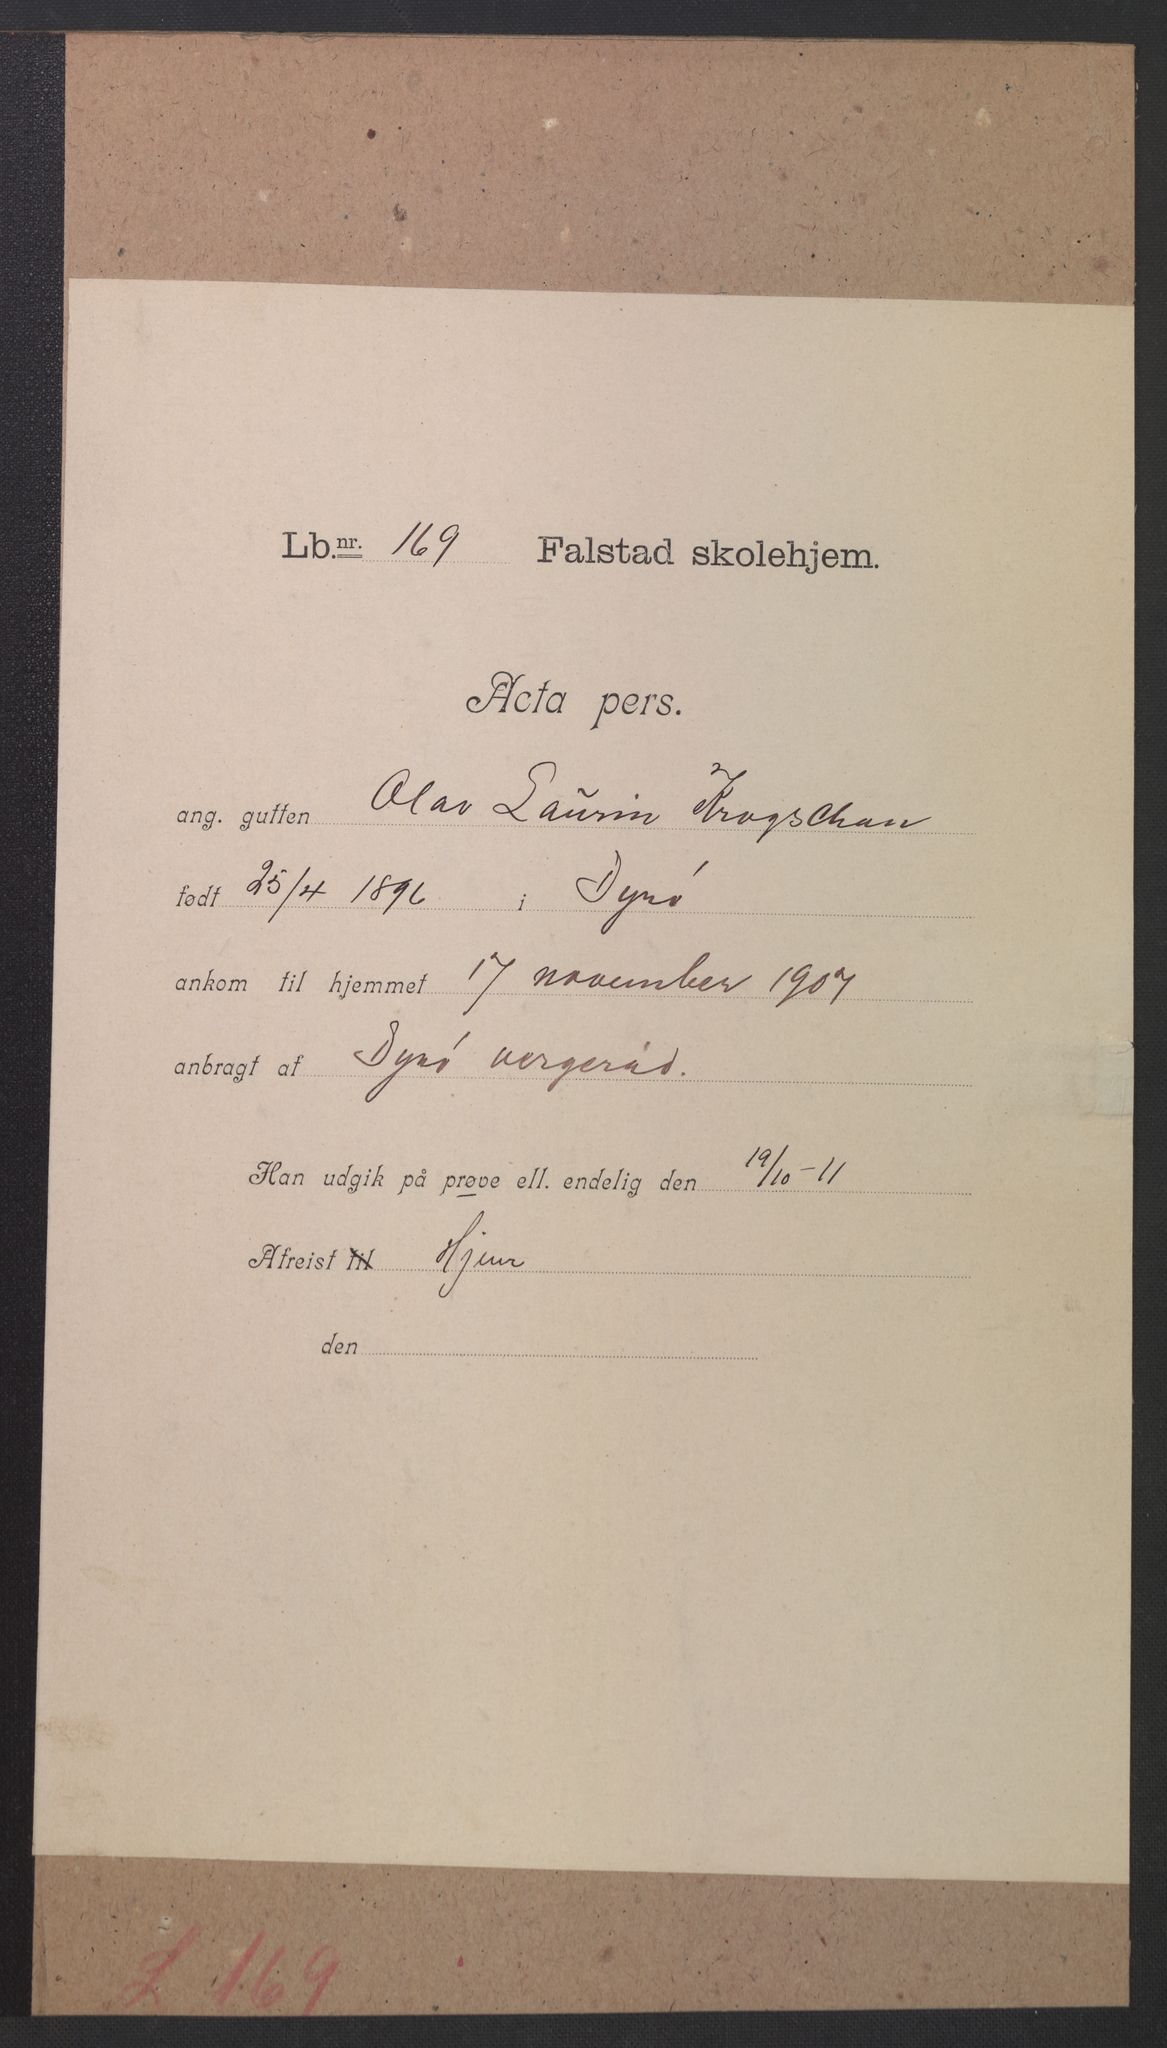 Lb.nr. 169 Falstad skolehjem.
Acta pers.
ang. gutten Olav Laurin Krogschan
født 25/4 1896 i Dyrö
ankom til hjemmet 17 november 1907
anbragt af Dyrö vergeråd.
Han udgik på prøve ell. endelig den 19/10-11
Afreist til Hjem
den
L 169